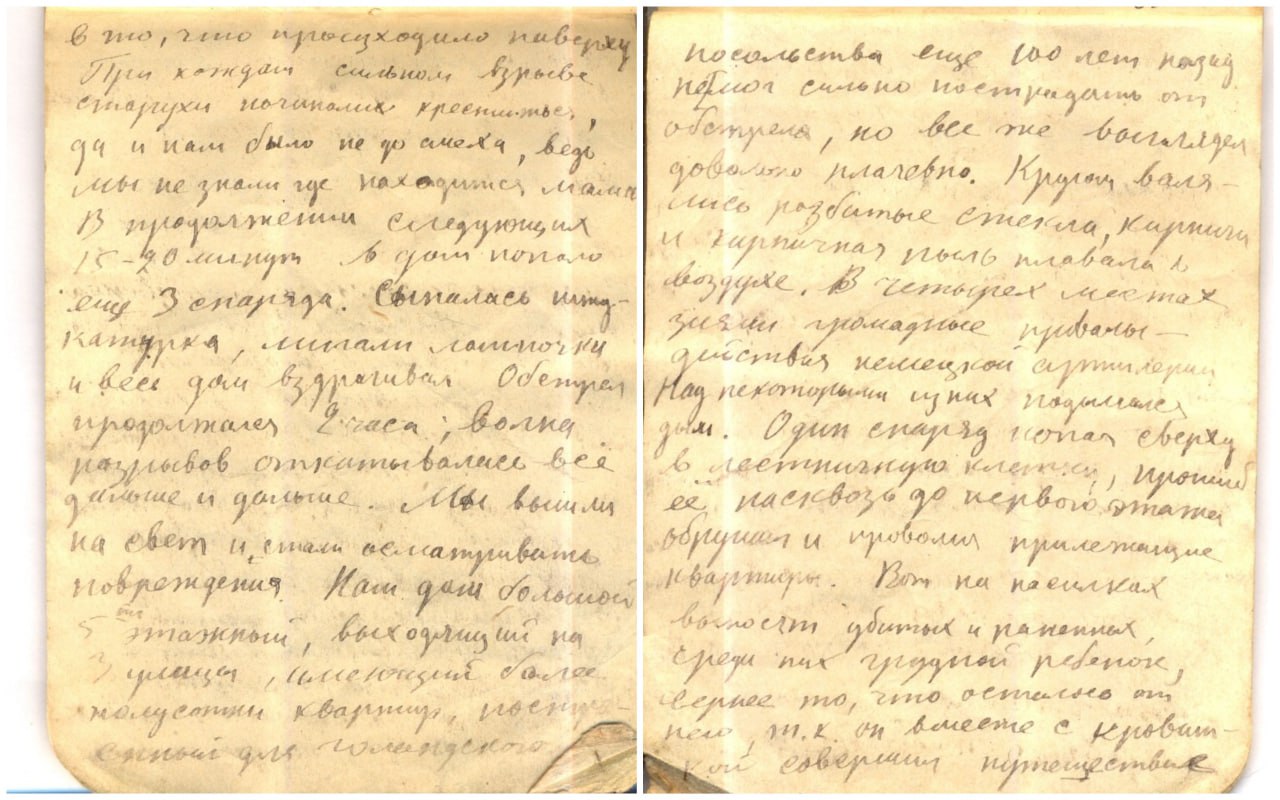 в то, что происходило наверху
При каждом сильном взрыве
старухи начинали креститься,
да и нам было не до смеха, ведь
мы не знали где находится мама
В продолжении следующих
15-20 минут в дом попало
ещё 3 снаряда. Сыпалась шту-
катурка, мигали лампочки
и весь дом вздрагивал Обстрел
продолжался 2 часа; волна
разрывов откатывалась всё
дальше и дальше. Мы вышли
на свет и стали осматривать
повреждения. Наш дом большой
5ти этажный, выходящий на
3 улицы, имеющий более
полусотни квартир, постро-
енный для голандского
посольства еще 100 лет назад
не мог сильно пострадать от
обстрела, но все же выглядел
довольно плачевно. Кругом валя-
лись разбитые стекла, кирпичи
и кирпичная пыль плавала в
воздухе. В четырех местах
зияли громадные провалы —
действия немецкой артилерии
Над некоторыми из них подымался
дым. Один снаряд попал сверху
в лестничную клетку, прошиб
её насквозь до первого этажа
обрушил и провалил прилежащие
квартиры. Вот на насилках
выносят убитых и раненных,
среди них грудной ребенок,
вернее то, что осталось от
него, т.к. он вместе с кроват-
кой совершил путешествие